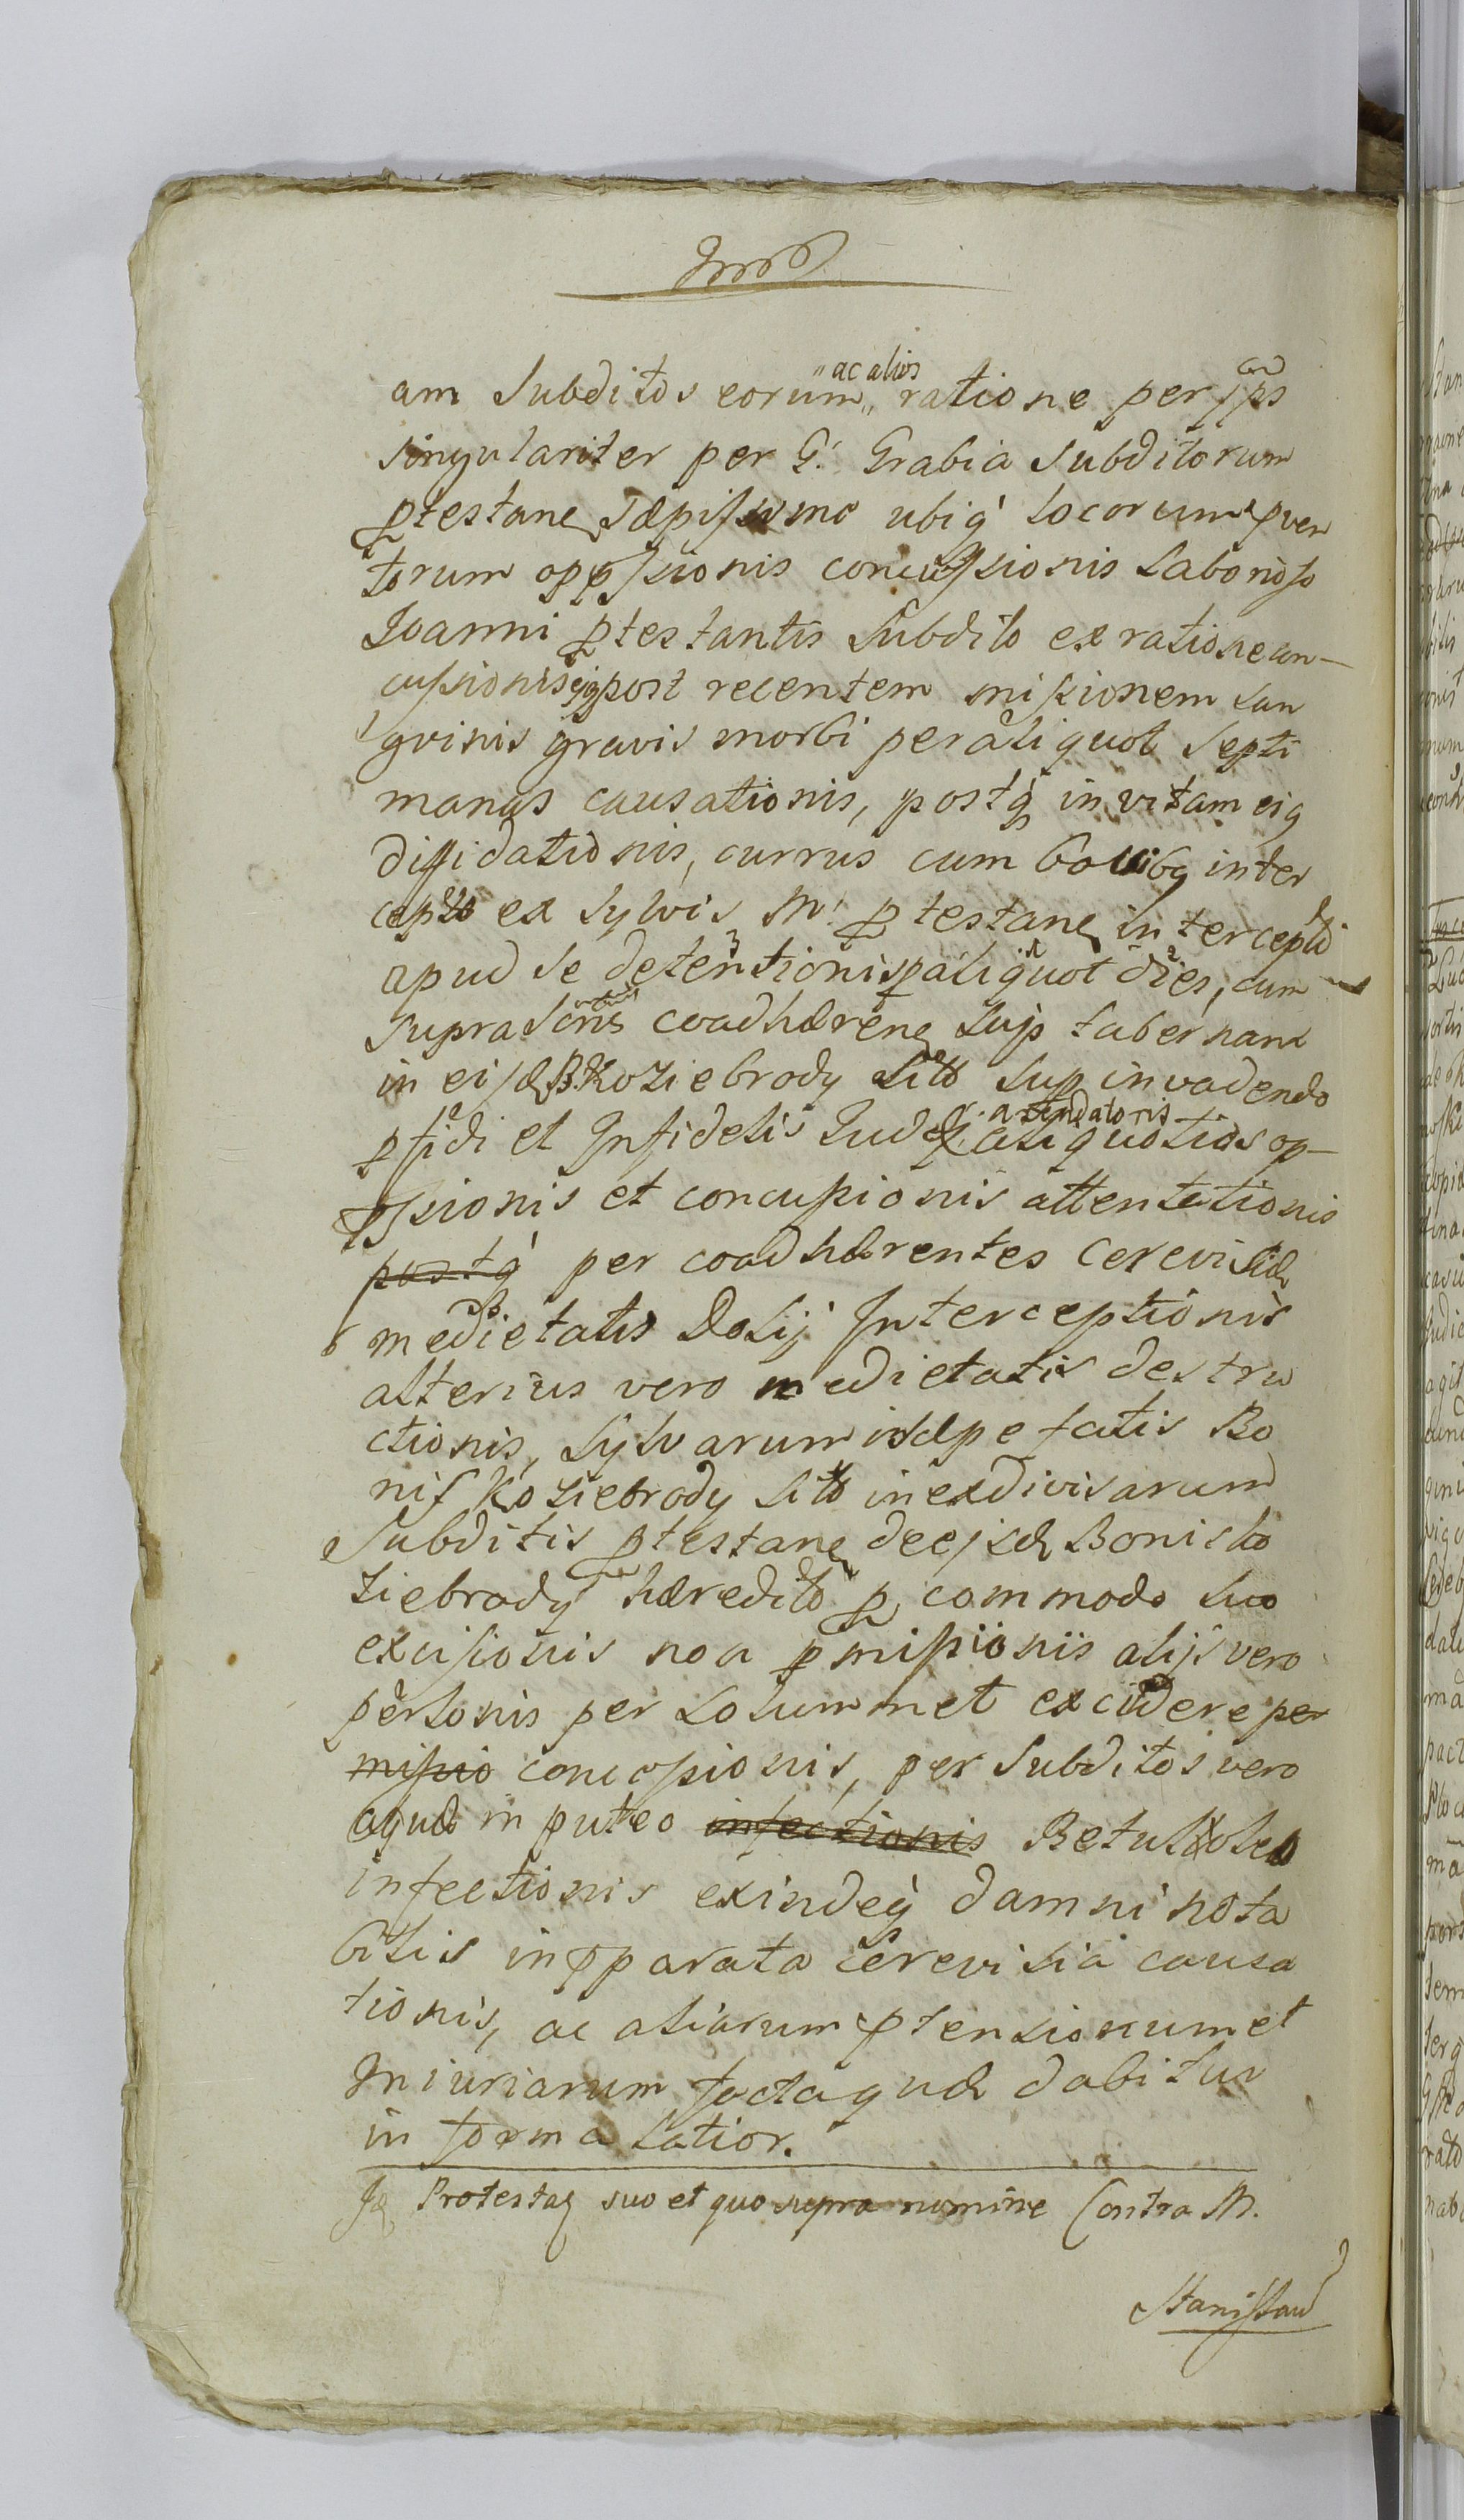 am Subditos eorum ac alios ratione per ips
singulariter per G. Grabia Subditorum
ptestane sæpissimo ubiq locorum pven
torum oppssionis concussionis Laborioso
Joanni ptestantis Subdito ex ratione con-
cussionis eiq post recentem missionem San
gvinis gravis morbi per aliquot Septi
manas causationis, postq in vitam eiq
diffidationis, currus cum bovibq inter
cepto ex Sylvis M. ptestane intercepti
apud se detentionis p aliquot dies, cum
suprascris coadhærene Sup tabernam
in eisd B. Koziebrody Sito Sup invadendo
pfidi et Infidelis Judæi arendatoris aliquotias op-
pssionis et concussionis attentationis
postq per coadhærentes Cerevisiæ
medietatis Dolij Interceptionis
alterius vero medietatis destru
ctionis, Sylvarum in sæpefatis Bo
nis Koziebrody Sito inexdivisarum
Subditis ptestane de eisd Bonis Ko
ziebrody hæredito p commodo suo
excisionis non pmissionis alijs vero
personis per Solummet excidere per
missio concessionis, per Subditos vero
aquæ in puteo infectionis Betul oleo
infectionis exindeq damni nota
bilis in pparata Cerevisia causa
tionis, ac aliarum ptensionum et
Iniuriarum facta quæ dabitur
in forma Latior.
Id Protestaq suo et quo supra nomine Contra M.
Stanislaw